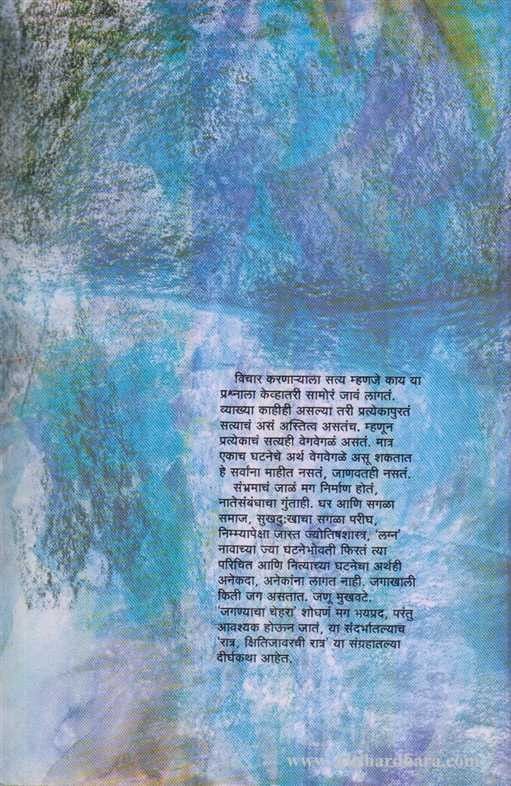 विचार करणाऱ्याला सत्य म्हणजे काय या
प्रश्नाला केव्हातरी सामोरं जावं लागतं.
व्याख्या काहीही असल्या तरी प्रत्येकापुरतं
सत्याचं असं अस्तित्व असतंच. म्हणून
प्रत्येकाचं सत्यही वेगवेगळं असतं. मात्र
एकाच घटनेचे अर्थ वेगवेगळे असू शकतात
हे सर्वांना माहीत नसतं, जाणवतही नसतं.
संभ्रमाचं जाळं मग निर्माण होतं,
नातेसंबंधाचा गुंताही. घर आणि सगळा
समाज, सुखदु:खाचा सगळा परीघ,
निम्म्यापेक्षा जास्त ज्योतिषशास्त्र, 'लग्न'
नावाच्या ज्या घटनेभोवती फिरतं त्या
परिचित आणि नित्याच्या घटनेचा अर्थही
अनेकदा, अनेकांना लागत नाही. जगाखाली
किती जग असतात. जणू मुखवटे.
'जगण्याचा चेहरा' शोधणं मग भयप्रद, परंतु
आवश्यक होऊन जातं, या संदर्भातल्याच
'रात्र, क्षितिजावरची रात्र' या संग्रहातल्या
दीर्घकथा आहेत.